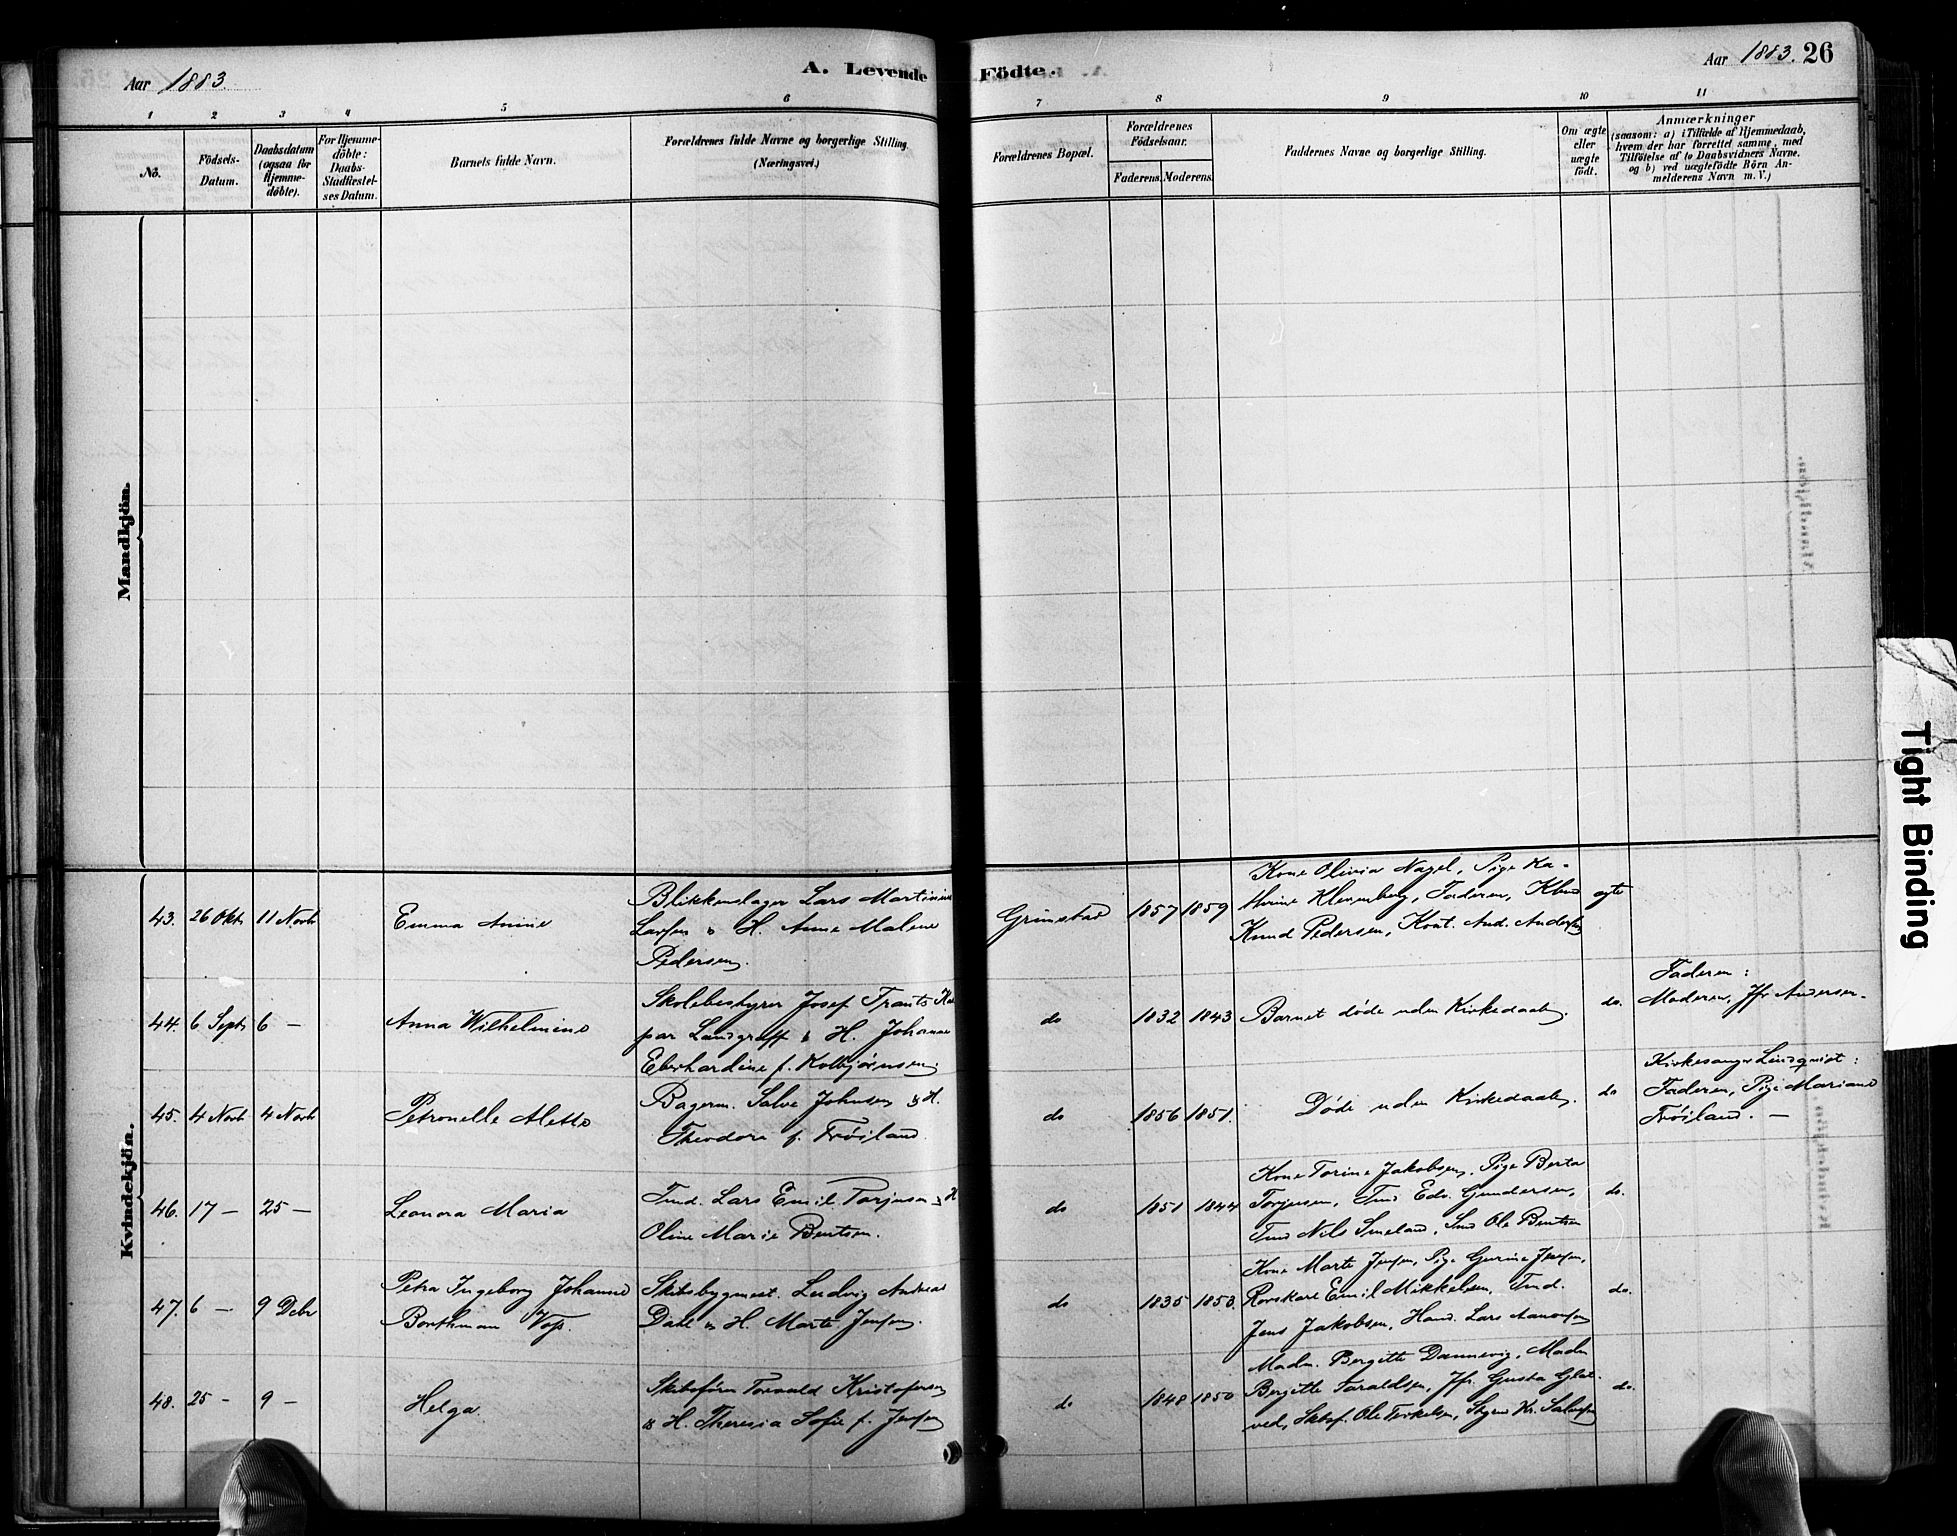 Aar 1883.
A. Levende
Födte.
Aar 1883. 26
1 2 3 4 5 6 7 8 9 10 11
No.
Födsels-
Datum.
Daabsdatum
(ogsaa for
Hjemme-
döbte).
For Hjemme-
döbte:
Daabs-
Stadfæstel-
ses Datum.
Barnets fulde Navn.
Forældrenes fulde Navne og borgerlige Stilling.
(Næringsvei.)
Forældrenes Bopæl.
Forældrenes
Födselsaar.
Faderens. Moderens.
Faddernes Navne og borgerlige Stilling.
Om ægte
eller
uægte
födt.
Anmærkninger
(saasom: a) i Tilfælde af Hjemmedaab,
hvem der har forrettet samme, med
Tilföielse af to Daabsvidners Navne.
og b) ved uægtefödte Börn An-
melderens Navn m. V.)
Mandkjön.
Kvindekjön.
43. 26 Okt 11 Novb
Emma Anine
Blikkenslager Lars Martinius
Larsen & H. Anne Malene
Pedersen.
Grimstad
1857 1859
Kone Olivia Nagel, Pige Ka-
thrine Klemmberg, Faderen,
Knud Pedersen, Kont. And. Andersen
ægte
44. 6 Septr 6 —
Anna Wilhelmine
Skolebestyrer Josef Frants Kas
par Landgraff & H. Johanne
Eberhardine f. Kolbjørnsen
do
1832 1843
Barnet døde uden Kirkedaab.
do.
Faderen:
Moderen, Jfr Andersen.
45. 4 Novb 4 Novb
Petronelle Alette
Bagerm. Salve Johnsen & H.
Theodora f. Frøiland.
do
1856 1851.
Døde uden Kirkedaab.
do
Kirkesanger Lindquist:
Faderen, Pige Mariane
Frøiland. —
46. 17 — 25 —
Leonora Maria
Tmd. Lars Emil Torjusen & H
Oline Marie Bentsen.
do
1851 1844
Kone Torine Jakobsen, Pige Berta
Torjusen, Tmd Edv. Gundersen,
Tmd Nils Smeland, Smd Ole Bentsen
do.
47. 6 — 9 Debr
Petra Ingeborg Johanne
Borthman Vos.
Skibsbygmest. Ludvig Andreas
Dahl & H. Marte Jensen.
do
1835 1853.
Kone Marte Jensen, Pige Gurine Jensen,
Rorskarl Emil Mikkelsen, Tmd.
Jens Jakobsen, Hand. Lars Aanonsen
do.
48. 25 - 9 —
Helga.
Skibsfører Torvald Kristofersen
& H. Theresia Sofie f. Jensen
do
1848 1850
Madm. Bergitte Dannevig, Madm
Bergitte Taraldsen, Jfr. Gusta Glat-
ved, Skbsf. Ole Terkelsen, Styrm Kr. Salvesen
do.
Tight Binding